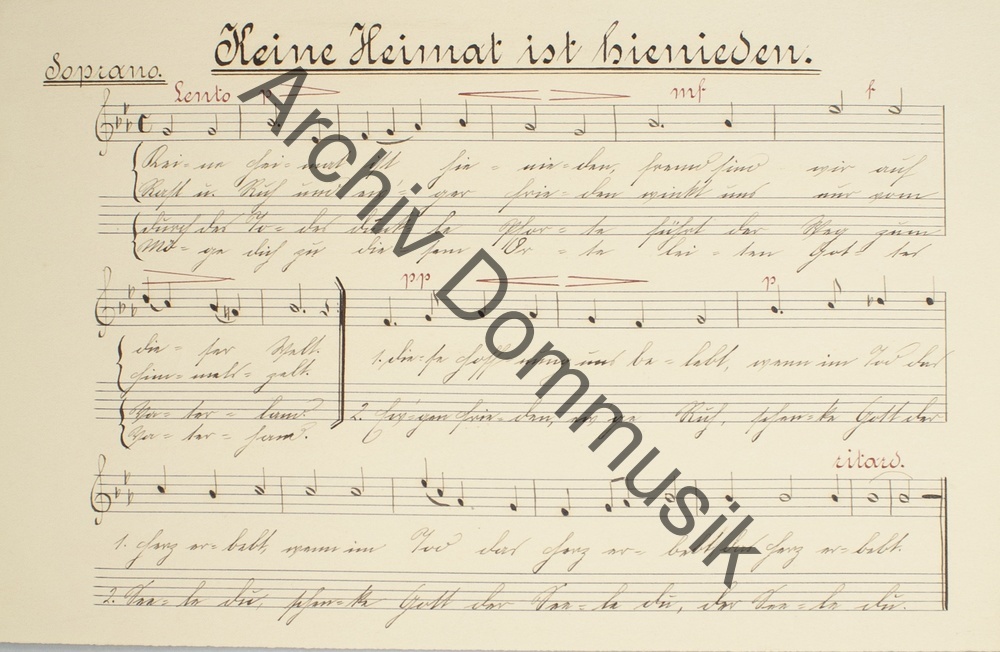 Keine Heimat ist hienieden.
Soprano.
Lento p mf f
Kei = ne Hei = mat ist hie = nie = den, fremd sind wir auf
Rast u. Ruh und ew' = ger Frie = den winkt uns nur vom
durch des To = des dunkle Pfor = te führt der Weg zum
Mö = ge dich zu die = sem Or = te lei = ten Got = tes
pp p
die = ser Welt.
Him = mels = zelt.
1. die = se Hoffnung uns be = lebt, wenn im Tod das
Va = ter = land.
Va = ter = hand.
2. Ew'gen Frie = den, Ruh, schen = ke Gott der
ritard.
1. Herz er = bebt, wenn im Tod das Herz er = bebt das Herz er = bebt.
2. See = le du, schen = ke Gott der See = le du, der See = le du.
Archiv Dommusik